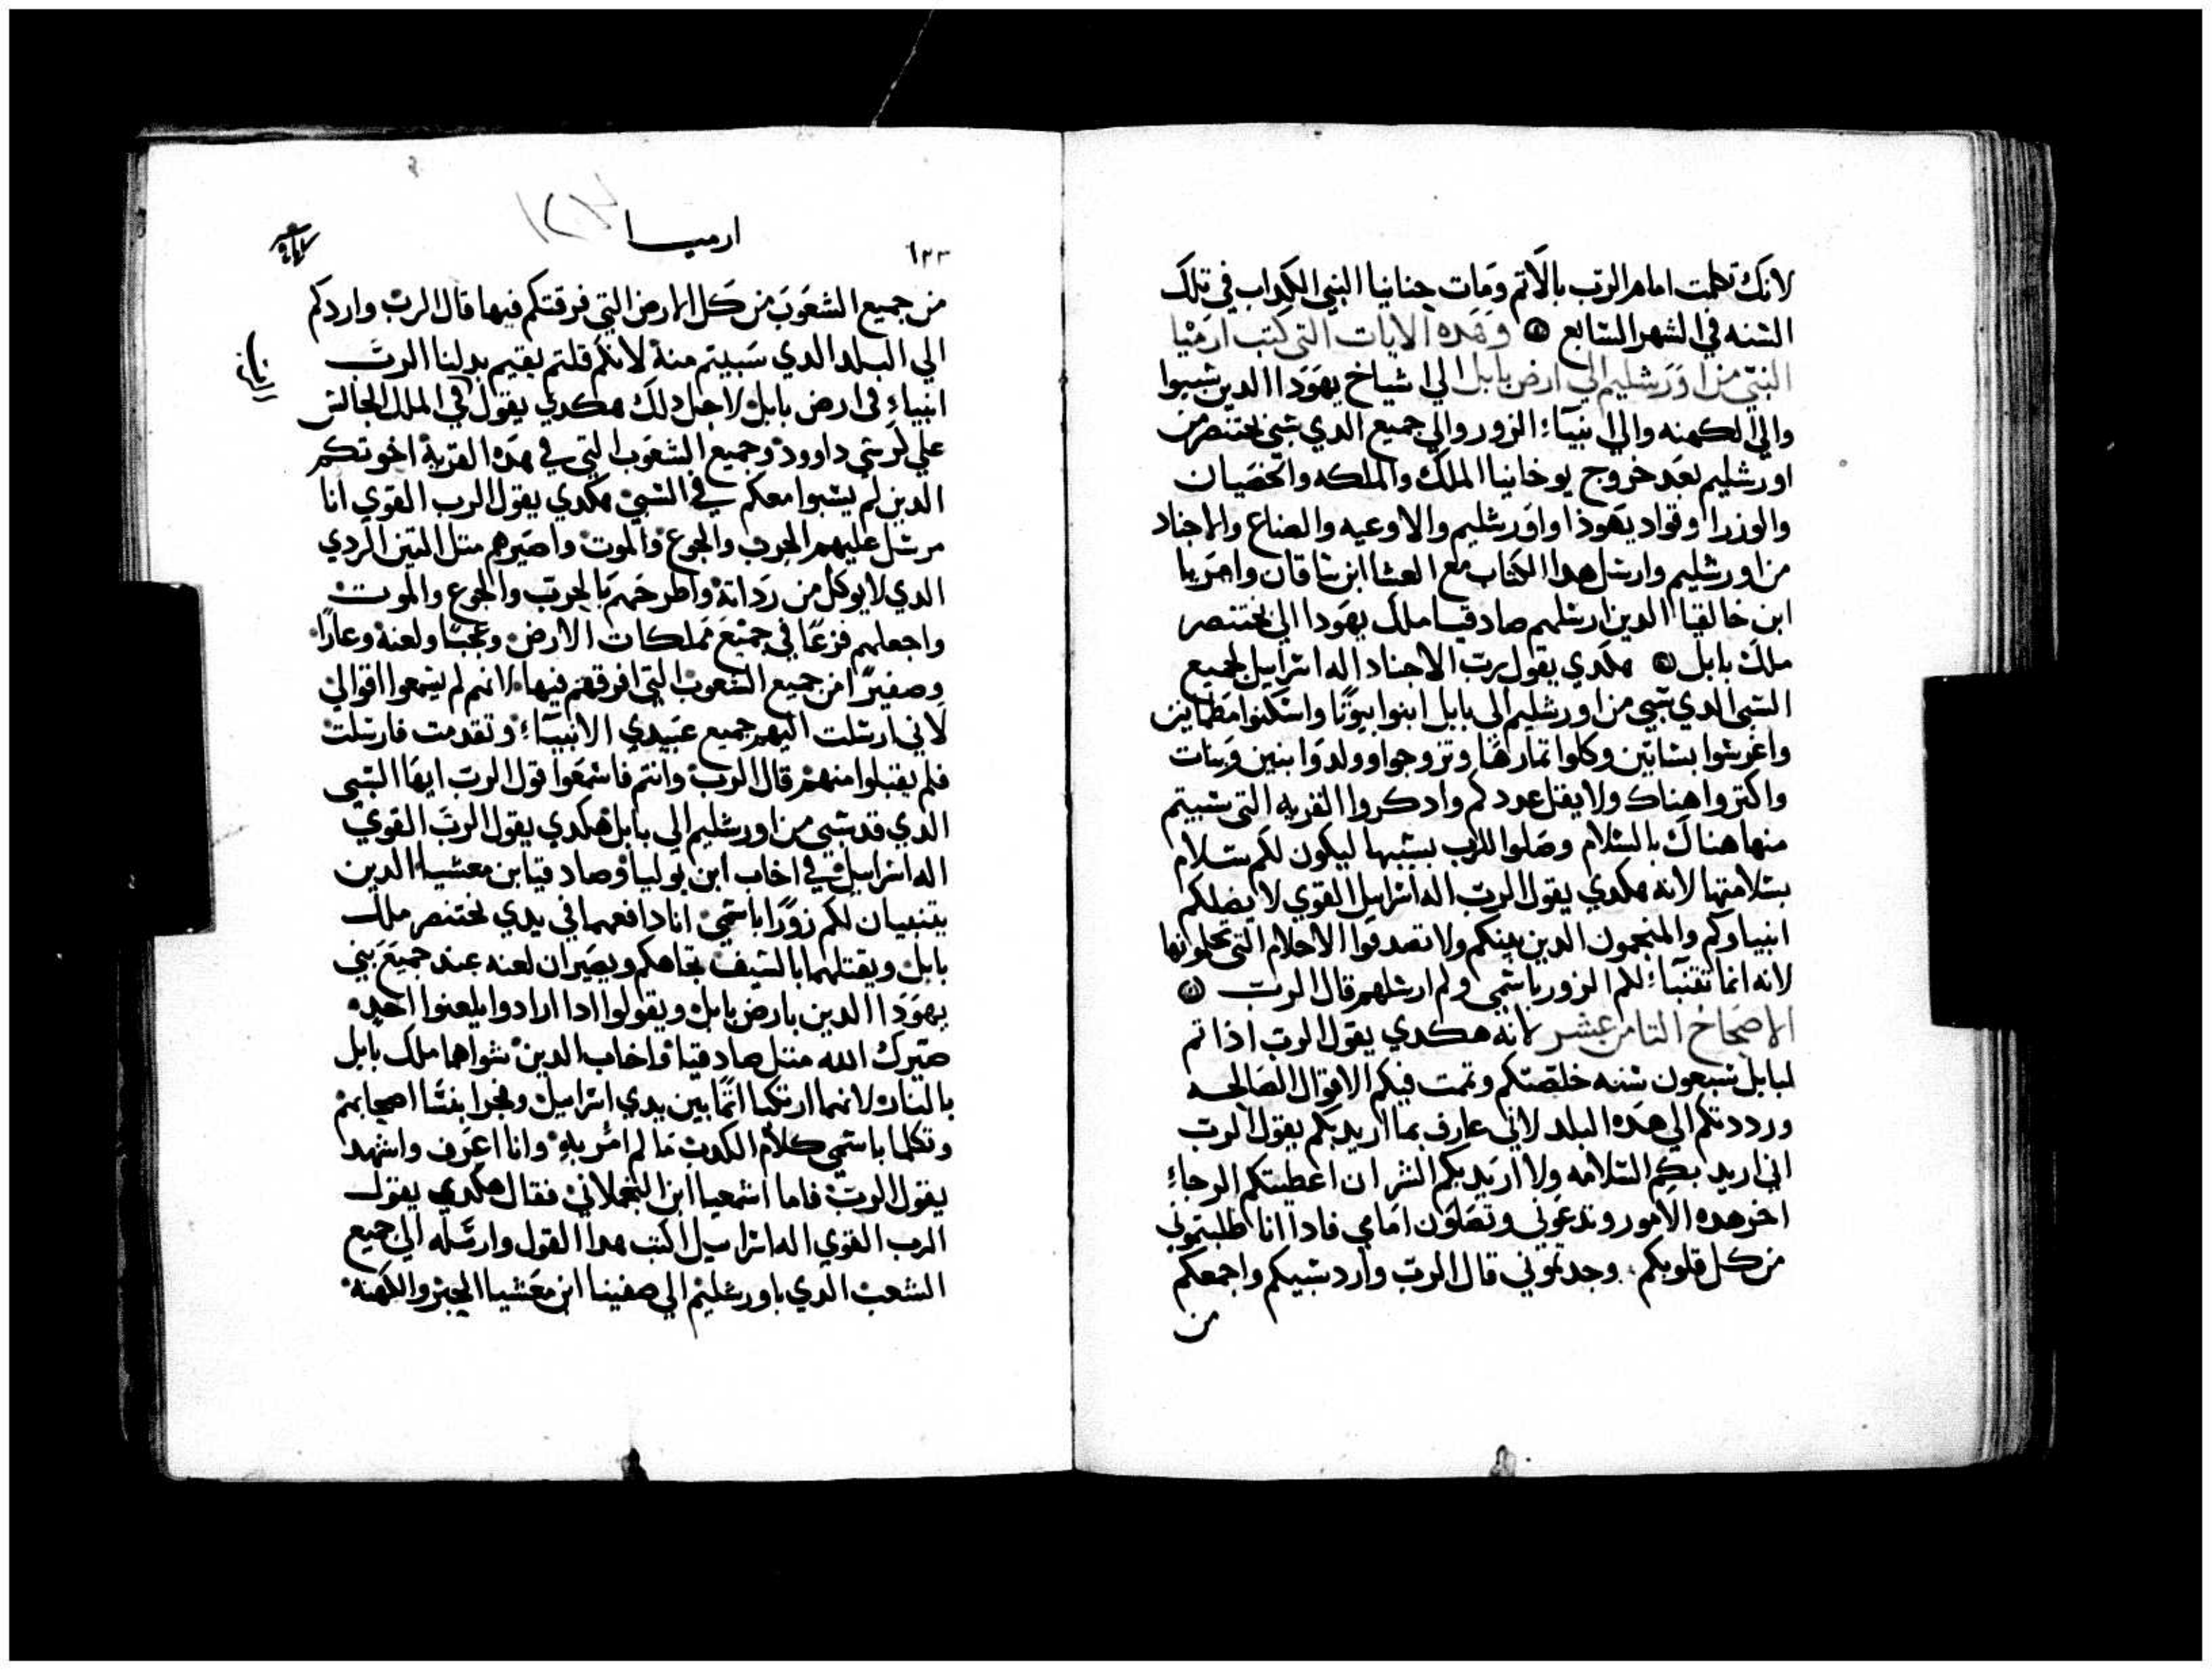 لانك تكلمت امام الرب بالاتم ومات حنانيا النبي الكداب في تلك
السنه في الشهر السابع وهده الايات التي كتب ارميا
النبي من اورشليم الي ارض بابل الي اشياخ يهودا الدين سبيوا
والي الكهنه والي انبياء الزور والي جميع الدي سبي بختنصر من
اورشليم بعد خروج يوخانيا الملك والملكه والخصيان
والوزرا وقواد يهودا واورشليم والاوعيه والصناع والاجناد
من اورشليم وارسل هدا الكتاب مع العسا ابن ساقان وامريا
ابن خالقيا الدين ارسلهم صادقيا ملك يهودا الي بختنصر
ملك بابل هكدي يقول رب الاجناد اله اسراييل لجميع
السبي الدي سبي من اورشليم الي بابل ابنوا بيوتا واسكنوا مطماينن
واغرسوا بساتين وكلوا تمارها وتزوجوا وولدوا بنين وبنات
واكتروا هناك ولا يقل عددكم وادكروا القريه التي سبيتم
منها هناك بالسلام وصلوا للرب بسببها ليكون لكم سلام
بسلامتها لانه هكدي يقول الرب اله اسراييل القوي لا يضلكم
انبياوكم والمنجمون الدين بينكم ولا تصدقوا الاحلام التي تحلمونها
لانه انما تتنباء لكم الزور باسمي ولم ارسلهم قال الرب
الاصحاح التامن عشر لانه هكدي يقول الرب اذا تم
لبابل سبعون سنه خلصتكم وتمت فيكم الاقوال الصالحه
ورددتكم الي هده البلد لاني عارف بما اريد بكم يقول الرب
اني اريد بكم السلامه ولا اريد بكم الشر ان اعطيتكم الرجاء
اخر هده الامور وتدعوني وتصلون امامي فادا انا طلبتموني
من كل قلوبكم وجدتموني قال الرب وارد سبيكم واجمعكم
من
٦٣٣ ارميا ١٢٧
من جميع الشعوب من كل الارض التي فرقتكم فيها قال الرب واردكم
الي البلد الدي سبيتم منه لانكم قلتم يقيم بدلنا الرب
انبياء في ارض بابل لاجل دلك هكدي يقول في الملك الجالس
علي كرسي داوود وجميع الشعوب التي في هده القرية اخوتكم
الدين لم يسبوا معكم في السبي هكدي يقول الرب القوي انا
مرسل عليهم الحرب والجوع والموت واصيرهم متل التين الردي
الدي لا يوكل من رداته واطرحهم بالحرب والجوع والموت
واجعلهم فزعا في جميع مملكات الارض وعجبا ولعنة وعارا
وصفيرا من جميع الشعوب التي افرقهم فيها لانهم لم يسمعوا اقوالي
لاني ارسلت اليهم جميع عبيدي الانبياء وتقدمت فارسلت
فلم يقبلوا منهم قال الرب وانتم فاسمعوا قول الرب ايها السبي
الدي قد سبي من اورشليم الي بابل هكدي يقول الرب القوي
اله اسراييل في اخاب ابن يوليا وصادقيا بن معشيا الدين
يتنبيان لكم زورا باسمي انا دافعهما في يدي بختنصر ملك
بابل ويقتلهما بالسيف تجاهكم ويصيران لعنه عند جميع بني
يهودا الدين بارض بابل ويقولوا ادا ارادوا يلعنوا احد
صيرك الله متل صادقيا واخاب الدين شواهما ملك بابل
بالنار لانهما ارتكبا اتما بين يدي اسراييل وفجرا بنسا اصحابهم
وتكلما باسمي كلام الكدب ما لم امر به وانا اعرف واشهد
يقول الرب فاما اسمعيا ابن النحملاني فقال هكدي يقول
الرب القوي اله اسراييل اكتب هدا القول وارسله الي جميع
الشعب الدي باورشليم الي صفينا ابن معشيا الحبر والكهنة